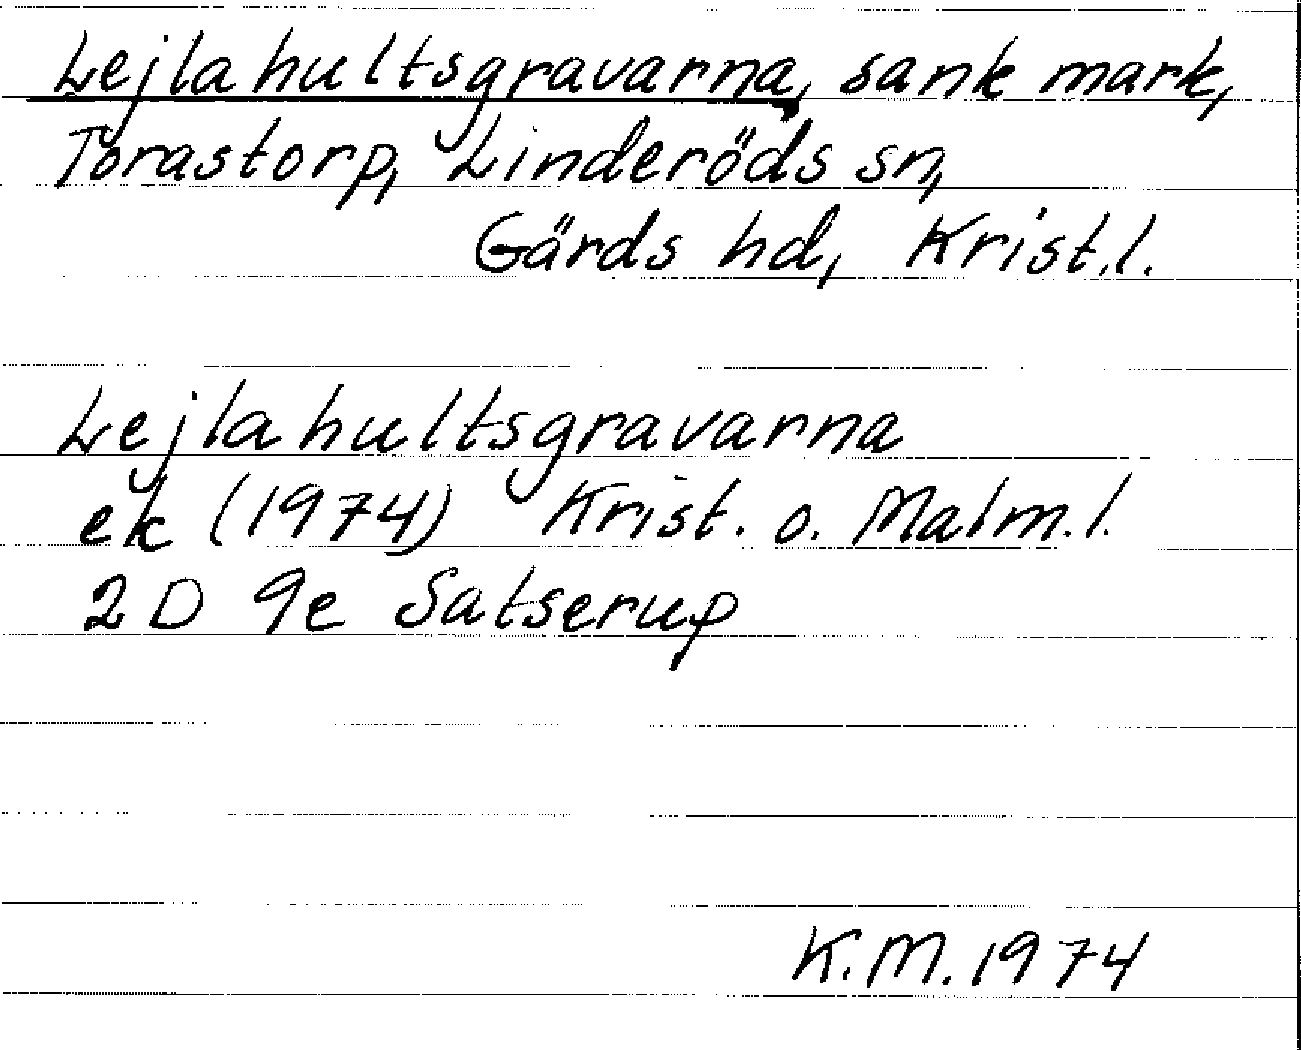 Lejlahultsgravarna, sank mark,
Torastorp, Linderöds sn,
Gärds hd, Krist.l.
Lejlahultsgravarna
ek (1974) Krist. o. Malm.l.
2D 9e Satserup
K.M. 1974